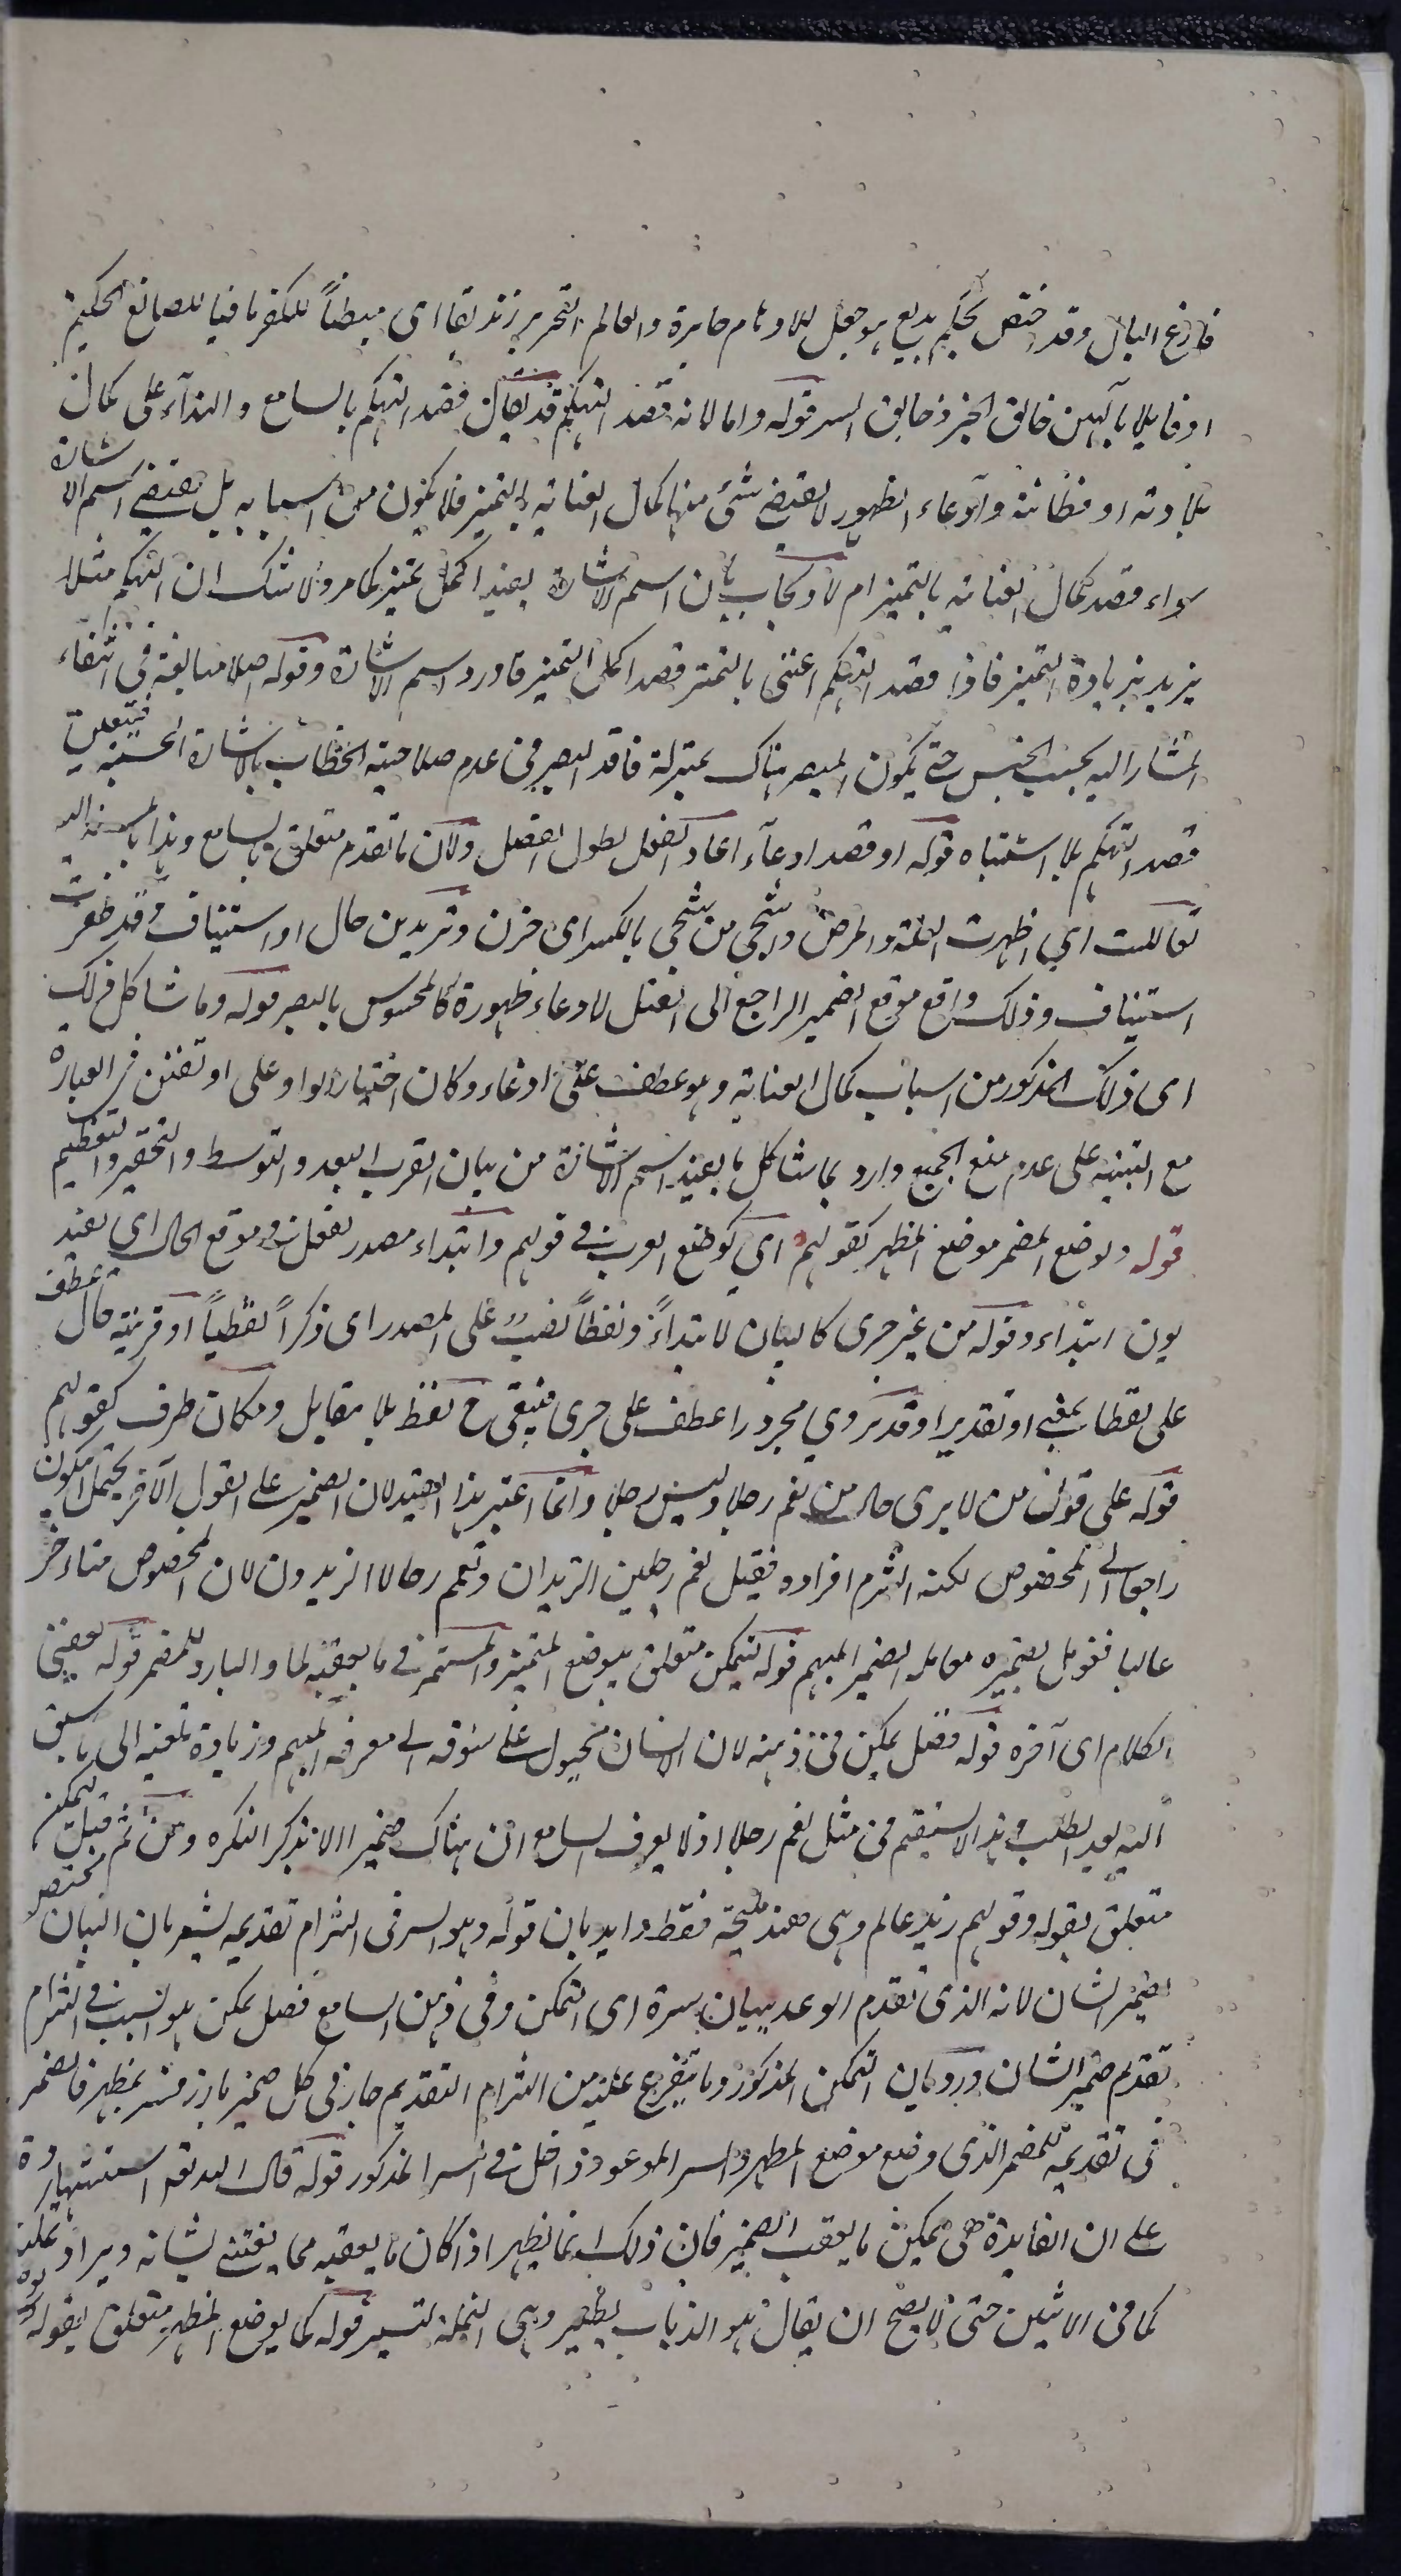 فارغ البال وقد اختص بحكم بديع هو جعل للاوهام حايرة والعالم النحرير زنديقا اى مبطنا للكفر نافيا للصانع الحكيم
او قايلا بآلهين خالق الخير وخالق الشر قوله واما لانه قصد التهكم قد يقال قصد التهكم بالسامع والنداء على كمال
بلادته او فطانته وادعاء الظهور لا يقتضى شئ منها كمال العناية بالتميز فلا يكون من اسبابه بل يقتضى اسم الاشارة
سواء قصد كمال العناية بالتميز ام لا ويجاب بان اسم الاشارة يفيد اكمل تميز كما مر ولا شك ان التهكم مثلا
يزيد بزيادة التميز فاذا قصد التهكم اعتنى بالتميز قصد اكمل التميز فاورد اسم الاشارة وقوله اصلا مبالغة فى انتفاء
المشار اليه بحسب الحس حتى يكون المبصر هناك بمنزلة فاقد البصر فى عدم صلاحية الخطاب بالاشارة الحسية فيتعلق
قصد التهكم بلا اشتباه قوله او قصد ادعاء اعاد الفعل لطول الفصل ولان ما تقدم متعلق بالسامع وهذا بالمسند اليه
تعاللت اي اظهرت العلة والمرض واشجى من شجى بالكسر اى حزن وتريدين حال او استيناف وقد ظفرت
استيناف وذلك واقع موقع الضمير الراجع الى القتل لادعاء ظهوره كالمحسوس بالبصر قوله وما شاكل ذلك
اى ذلك المذكور من اسباب كمال العناية وهو عطف على ادعاء وكان اختيار الواو على او تفنن فى العبارة
مع التنبيه على عدم منع الجمع واراد بما شاكل ما يفيد اسم الاشارة من بيان القرب البعد والتوسط والتحقير والتعظيم
قوله ولوضع المضمر موضع المظهر كقولهم اي كوضع العرب فى قولهم وابتداء مصدر لفعل فى موقع الحال اي يفيد
يون ابتداء وقوله من غير جرى كالبيان لابتداءً ولفظاً نصب على المصدر اى ذكراً لفظياً او قرينة حال عطف
على لفظا بمعنى او تقديرا وقد يروي مجرورا عطف على جرى فيبقى ح لفظ بلا مقابل ومكان ظرف كقولهم
قوله على قول من لا يرى حال من نعم رجلا وليس رجلا وانما اعتبر هذا القيد لان الضمير على القول الآخر يحتمل ان يكون
راجعا الى المخصوص لكنه التزم افراده فقيل نعم رجلين الزيدان ونعم رجالا الزيدون لان المخصوص متاءخر
غالبا فعومل بضميره معاملة الضمير المبهم قوله ليتمكن متعلق بوضع المتميز والمستمر فى ما يعقبه لما والبارد للمضمر قوله يعنى
الكلام اى آخره قوله فضل يمكن فى ذهنه لان الانسان مجبول على شوقه الى معرفة المبهم وزيادة تلفته الى ما سبق
اليه بعد الطلب وهذا لا يستقيم فى مثل نعم رجلا اذ لا يعرف السامع ان هناك ضميرا الا بذكر النكره ومن ثم قيل ليتمكن
متعلق بقوله وقولهم زيد عالم وهى هند مليحة فقط وايد بان قوله وهو السر فى التزام تقديمه يشعر بان البيان مختص
بضمير الشان لانه الذى تقدم الوعد ببيان سره اى التمكن وفى ذهن السامع فضل يمكن هو السبب فى التزام
تقديم ضمير الشان ورد بان التمكن المذكور وما يتفرع عليه من التزام التقديم جار فى كل ضمير بارز فسر بمظهر فالضمر
فى تقديمه للمضمر الذى وضع موضع المظهر والسر الموعود داخل فى السر المذكور قوله قال الله تعم استشهاد
على ان الفايدة هى تمكين ما يعقب الضمير فان ذلك انما يظهر اذا كان ما يعقبه مما يعتنى بشانه ويراد تمكينه
كما فى الاثيلن حتى لا يصح ان يقال هو الذباب يطير وهى النملة تسير قوله كما يوضع المظهر متعلق بقوله